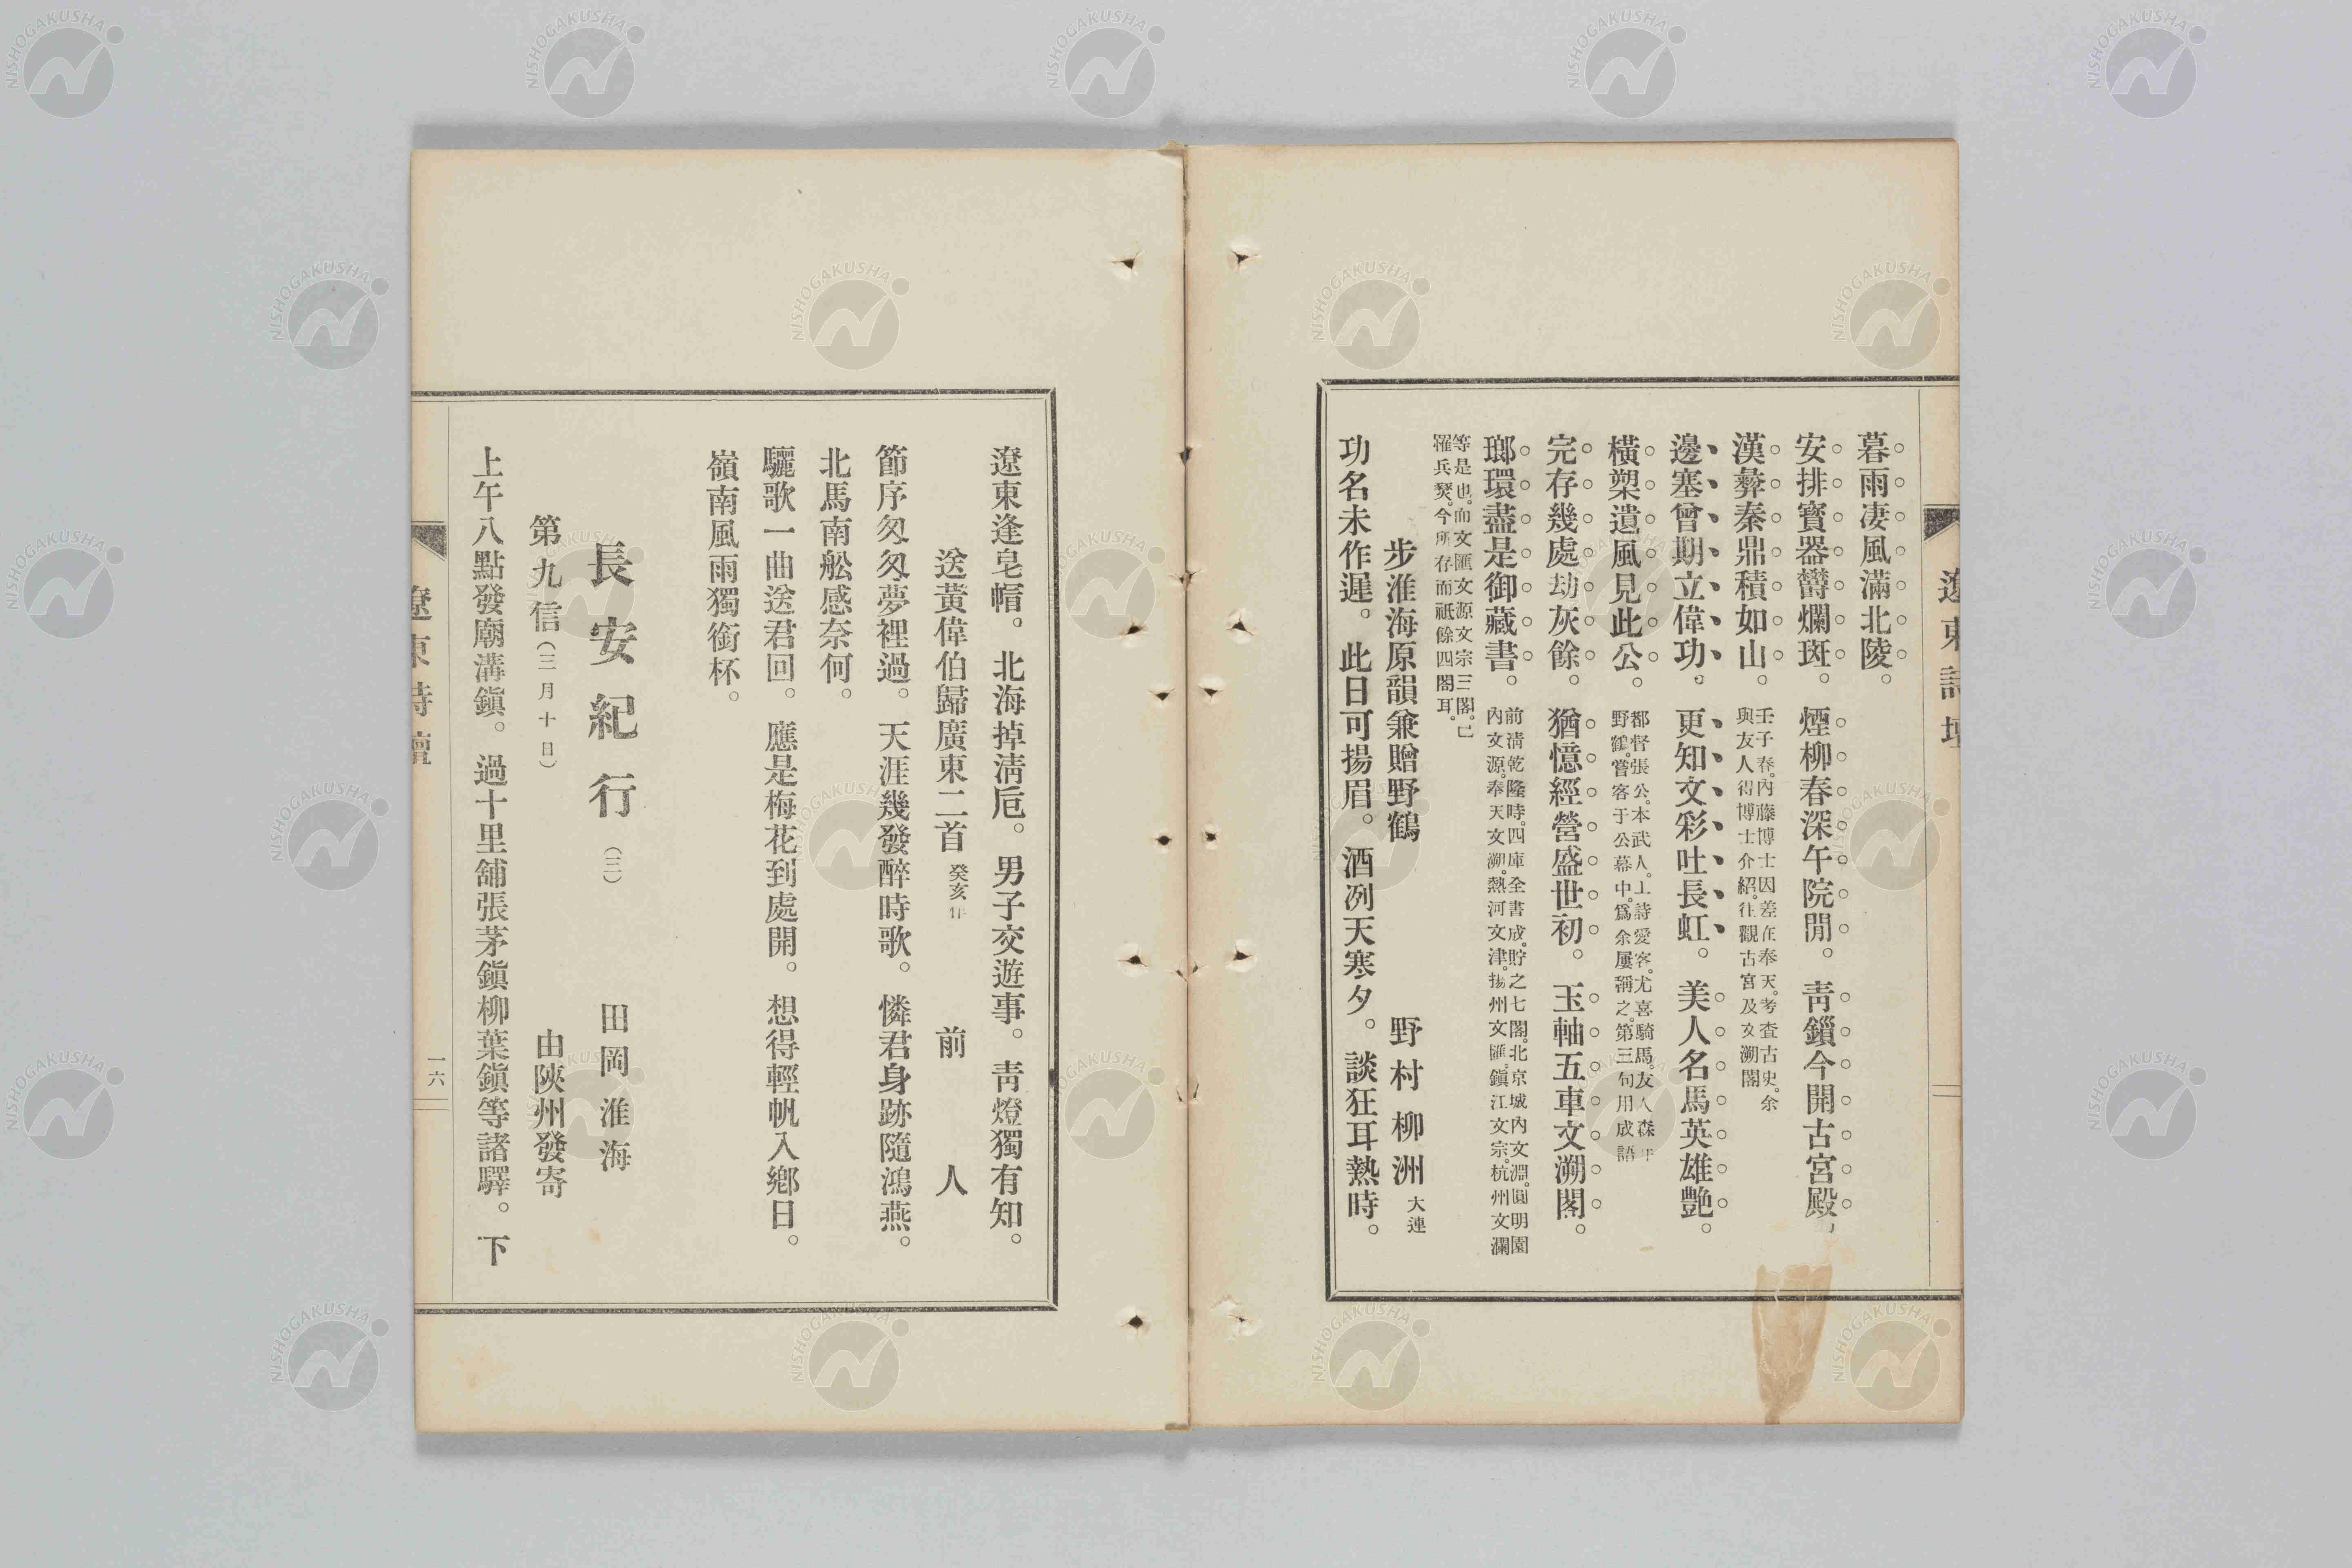 遼東詩壇
暮雨凄風滿北陵。
安排寶器欝爛斑。煙柳春深午院閒。靑鎻今開古宮殿
漢彝秦鼎積如山。壬子春。內藤博士因差在奉天。考査古史。余
與友人得博士介紹。往觀古宮及文溯閣
邊塞曾期立偉功。更知文彩吐長虹。美人名馬英雄艷。
橫槊遺風見此公。都督張公。本武人。上詩愛客。尤喜騎馬。友人森
野鶴。嘗客于公幕中。爲余屢稱之。第三句用成語
完存幾處劫灰餘。猶憶經營盛世初。玉軸五車文溯閣。
瑯環盡是御藏書。前淸乾隆時。四庫全書成。貯之七閣。北京城內文淵。圓明園
內文源。奉天文溯。熱河文津。揚州文匯。鎭江文宗。杭州文瀾
等是也。而文匯文源文宗三閣。已
罹兵燹。今所存而祇餘四閣耳。
步淮海原韻兼贈野鶴 野村柳洲 大連
功名未作遲。此日可揚眉。酒冽天寒夕。談狂耳熱時。
遼東逢皂帽。北海掉淸巵。男子交遊事。靑燈獨有知。
送黃偉伯歸廣東二首 癸亥作 前人
節序匆匆夢裡過。天涯幾發醉時歌。憐君身跡隨鴻燕。
北馬南舩感奈何。
驪歌一曲送君回。應是梅花到處開。想得輕帆入鄕日。
嶺南風雨獨銜杯。
長安紀行（三） 田岡淮海
第九信（三月十日） 由陝州發寄
上午八點發廟溝鎭。過十里舖張茅鎭柳葉鎭等諸驛。下
遼東詩壇 一六